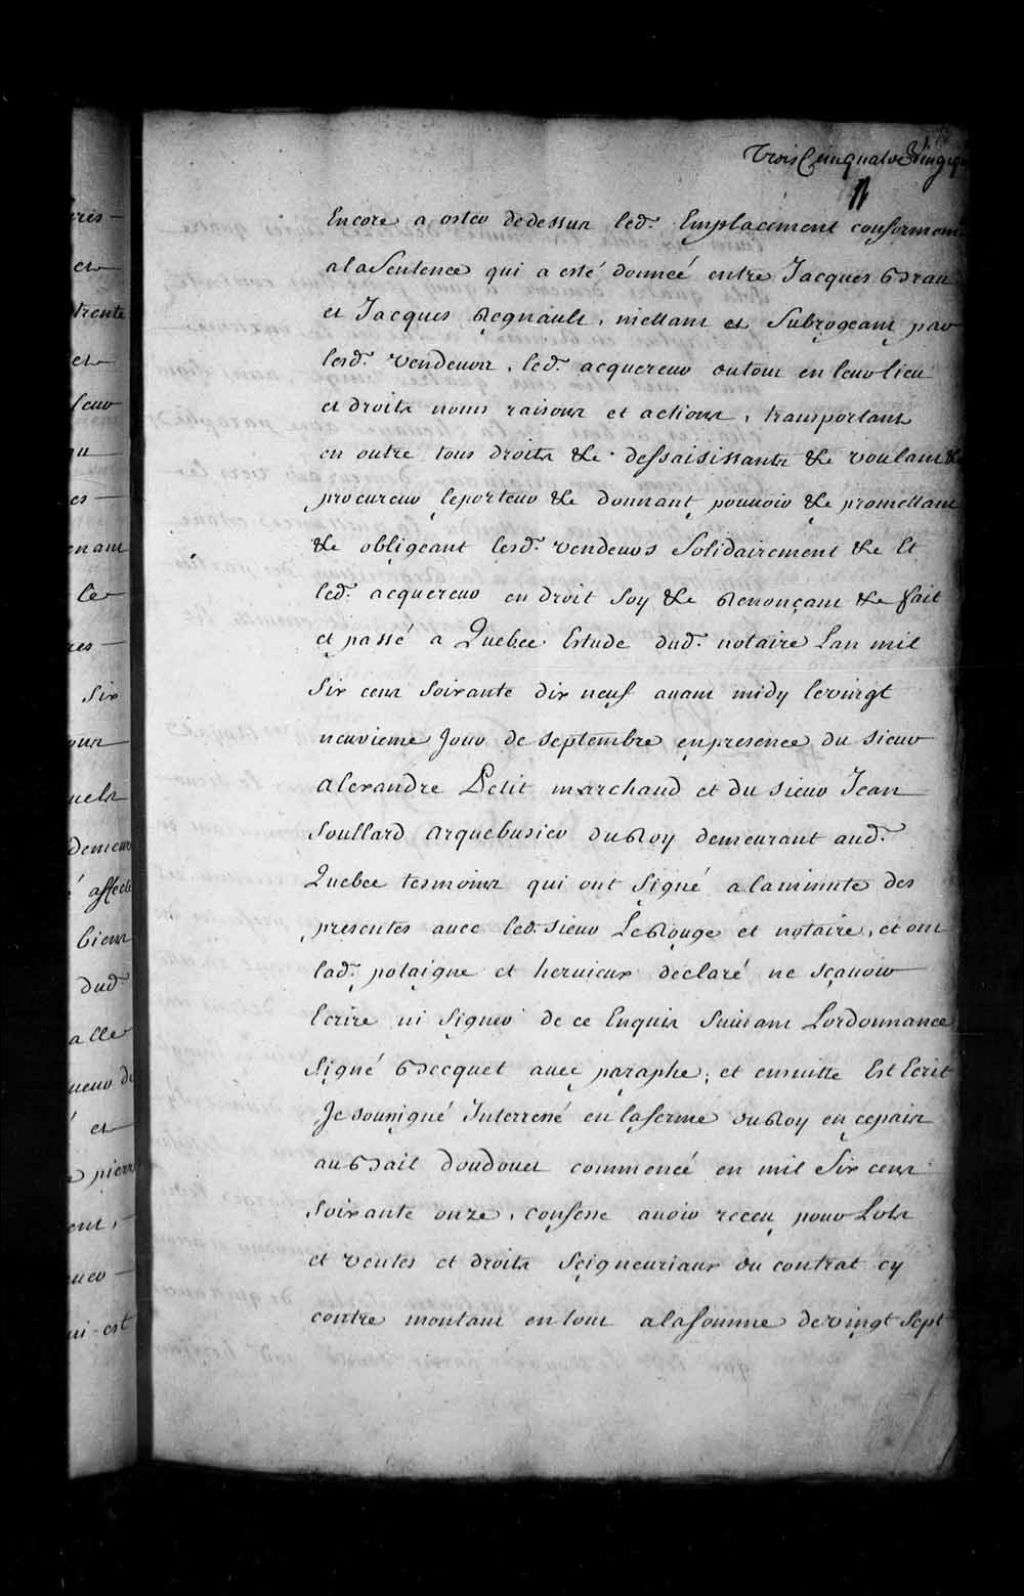 Trois Cent quatre Vingt
Encore a oster de dessus led. Emplacement conformem
a la Sentence qui a esté donneé entre Jacques Gran
et Jacques Regnault, mettant et Subrogeant par
lesd. vendeurs, led. acquereur en tout en leur lieu
et droits noms raisons et actions, transportant
en outre tous droits &c. dessaisissants &c voulant &c
procureur le porteur &c donnant pouuoir &c promettant
&c obligeant lesd. vendeurs Solidairement &c Et
led. acquereur en droit Soy &c Renonçant &c fait
et passé a Quebec Estude dud. notaire Lan mil
Six cens Soixante dix neuf auant midy le vingt
neuvieme Jour de Septembre en presence du Sieur
alexandre Petit marchand et du Sieur Jean
Soullard arquebusier du Roy demeurant aud.
Quebec tesmoins qui ont Signé a la minute des
presentes auec led. Sieur Le Rouge et notaire, et ont
lad. polaigne et heruieux declaré ne sçauoir
Ecrire ni Signer de ce Enquis Suiuant Lordonnance
Signé Becquet auec paraphe; et ensuitte Est Ecrit
Je soussigné Interressé en la ferme du Roy en ce païs
au Bail doudouet commencé en mil Six cens
Soixante onze, confesse auoir receu pour Lots
et ventes et droits Seigneuriaux du contrat cy
contre montant en tout a la Somme de vingt Sept
et
trente
et
leur
en ant
le
Six
uels
demeur
affecté
biens
dud
alle
et
pierre
ui est